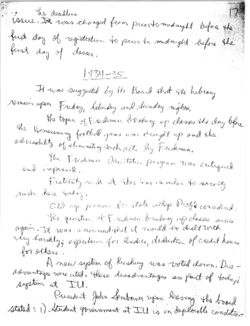 The deadline
issue. It was changed from prior to midnight before the
first day of registration to prior to midnight before the
first day of classes.
1934-35
It was suggested by the Board that the library
remain open Friday, Saturday and Sunday nights.
The topic of Freshmen breaking up classes the day before
the Homecoming football game was brought up and the
advisability of eliminating such acts by Freshmen.
The Freshmen Orientation program was
and improved.
Fraternity rush at this time similar to sorority
rush here today.
Old age pension for state college Profs considered.
The question of Freshmen breaking up classes arose
again. It was announced that it would be dealt with
very harshly; expulsion for leaders, deduction of credit hours
for others.
A new system of Rushing was voted down. Dis-
advantages were cited. These disadvantages are part of today's
system at ISU.
President John upon leaving the board
stated: 1) Student government at ISU is in deplorable condition